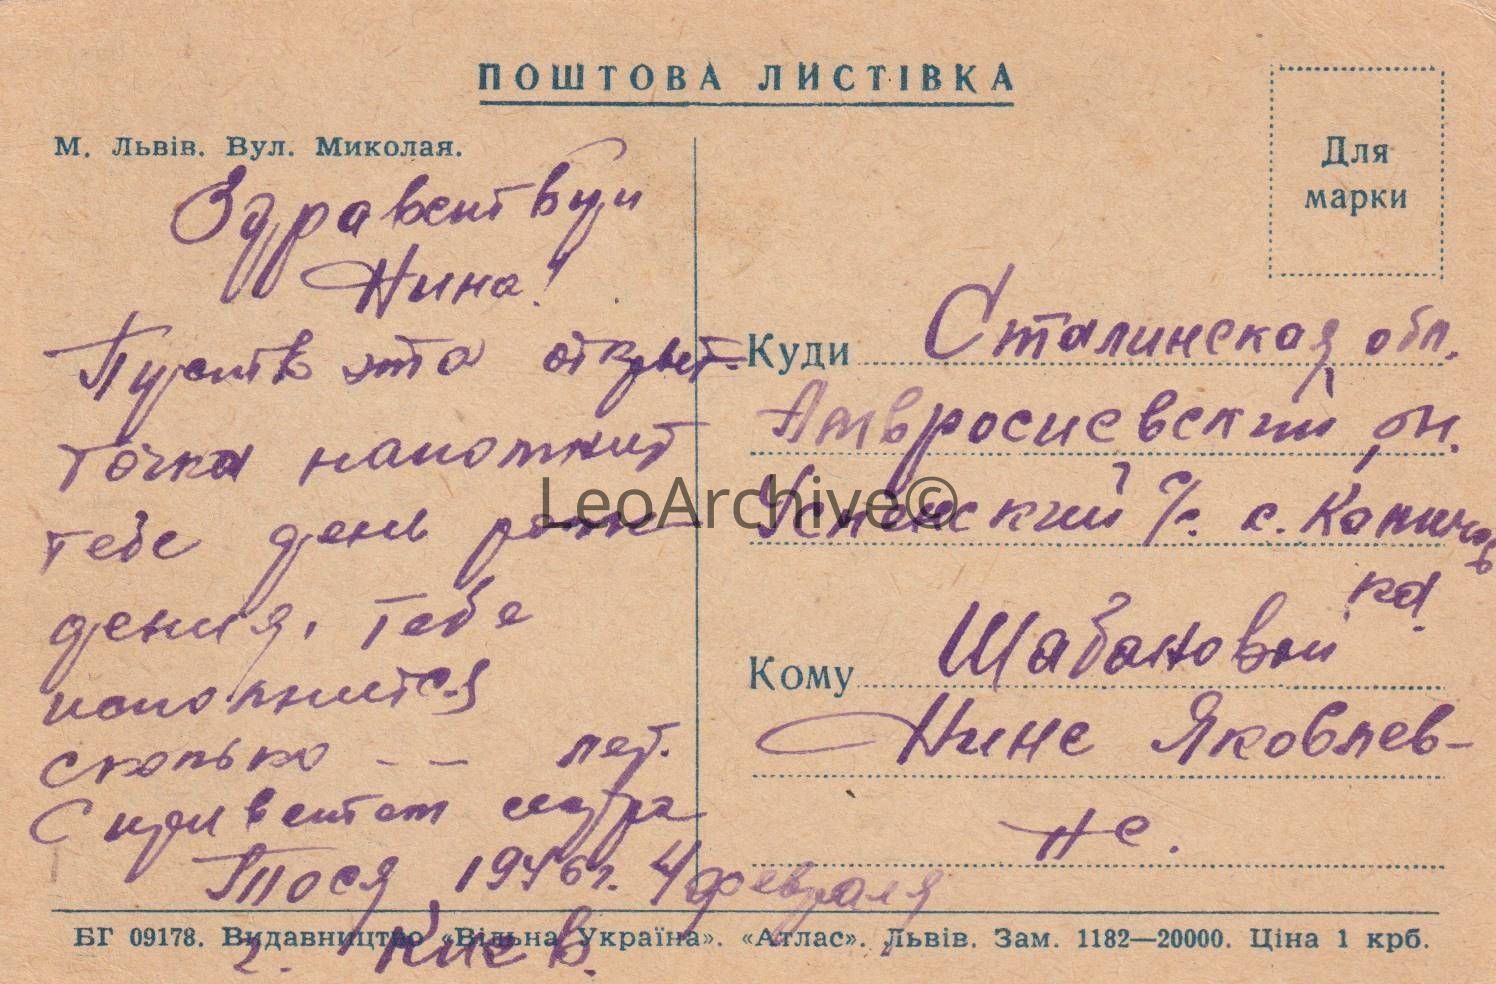 ПОШТОВА ЛИСТІВКА
Для
марки
М. Львів. Вул. Миколая.
Здравствуй
Нина!
Пусть эта открыт-
точка напомнит
тебе день рож-
дения, тебе
исполнится
сколько -- лет.
С приветом сестра
Тося 1946 г. 4 февраля
г. Киев.
Куди Сталинская обл.
Амвросиевский рн.
Успенский с/с. с.
Кому Шабановой
Нине Яковлев-
не.
LeoArchive©
БГ 09178. Видавництво «Вільна Україна». «Атлас». Львів. Зам. 1182—20000. Ціна 1 крб.